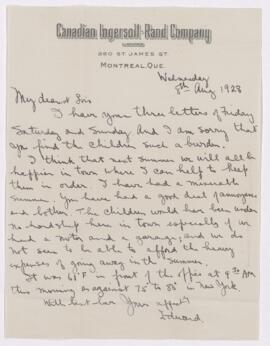 Canadian Ingersoll-Rand Company
260 ST. JAMES ST.
MONTREAL, QUE.
Wednesday
8th Aug 1928
My dearest Sis
I have your three letters of Friday
Saturday and Sunday. And I am sorry that
you find the children such a burden.
I think that next summer we will all be
happier in town where I can help to keep
them in order. I have had a miserable
summer. You have had a good deal of annoyance
and bother. The children would have been under
no hardship here in town especially if we
had a motor and a garage; and we do
not seem to be able to afford the heavy
expenses of going away in the summer.
It was 61°F in front of the office at 9:30 AM
this morning as against 75 to 80° in New York.
With best love Yours affectly
Edward.